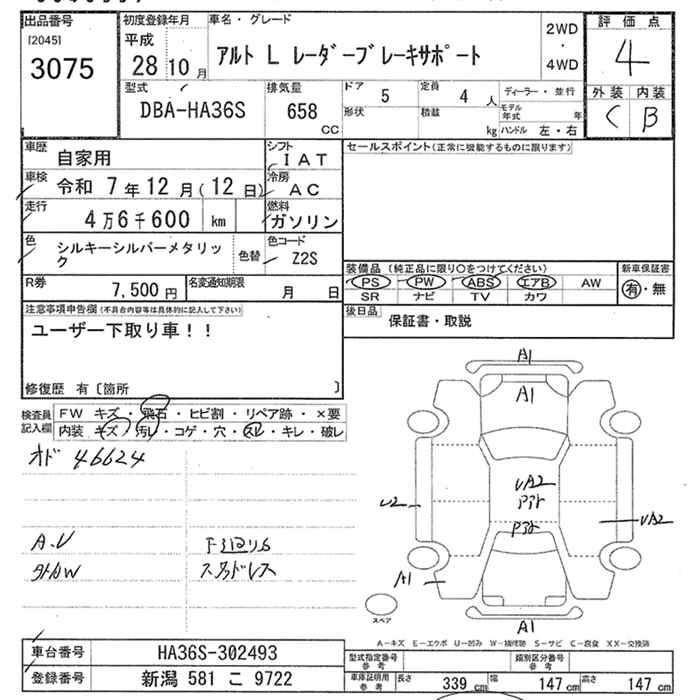 出品番号
[2045]
3075
初度登録年月
平成
28 10 月
車名・グレード
アルト L レーダーブレーキサポート
2WD
・
4WD
評価点
4
外装 内装
C B
型式
DBA-HA36S
排気量
658
cc
ドア
5
定員
4 人
形状
積載
kg
ディーラー・並行
モデル年式 年
ハンドル 左・右
車歴
自家用
シフト
I A T
車検
令和 7 年 12 月 ( 12 日)
冷房
A C
走行
4 万 6 千 600 km
燃料
ガソリン
色
シルキーシルバーメタリック
色替
色コード
Z2S
R券
7,500 円
名変通知期限
月 日
セールスポイント(正常に機能するものに限ります)
装備品 (純正品に限り○をつけてください)
PS PW ABS エアB AW
SR ナビ TV カワ
新車保証書
有・無
後日品
保証書・取説
注意事項申告欄(不具合内容等は具体的に記入して下さい)
ユーザー下取り車!!
修復歴 有〔箇所 〕
検査員記入欄
FW キズ・飛石・ヒビ割・リペア跡・×要
内装 キズ・汚レ・コゲ・穴・スレ・キレ・破レ
オド 46624
A.U
外AW
スタッドレス
A1
A1
UA2
U2
UA2
A1
A1
スペア
A-キズ E-エクボ U-凹み W-補修跡 S-サビ C-腐食 XX-交換済
車台番号
HA36S-302493
登録番号
新潟 581 こ 9722
型式指定番号
参考
類別区分番号
参考
車庫証明用
参考
長さ 339 cm
幅 147 cm
高さ 147 cm